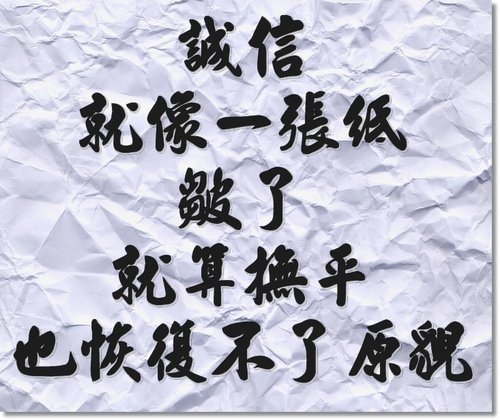 誠信
就像一張紙
皺了
就算撫平
也恢復不了原貌